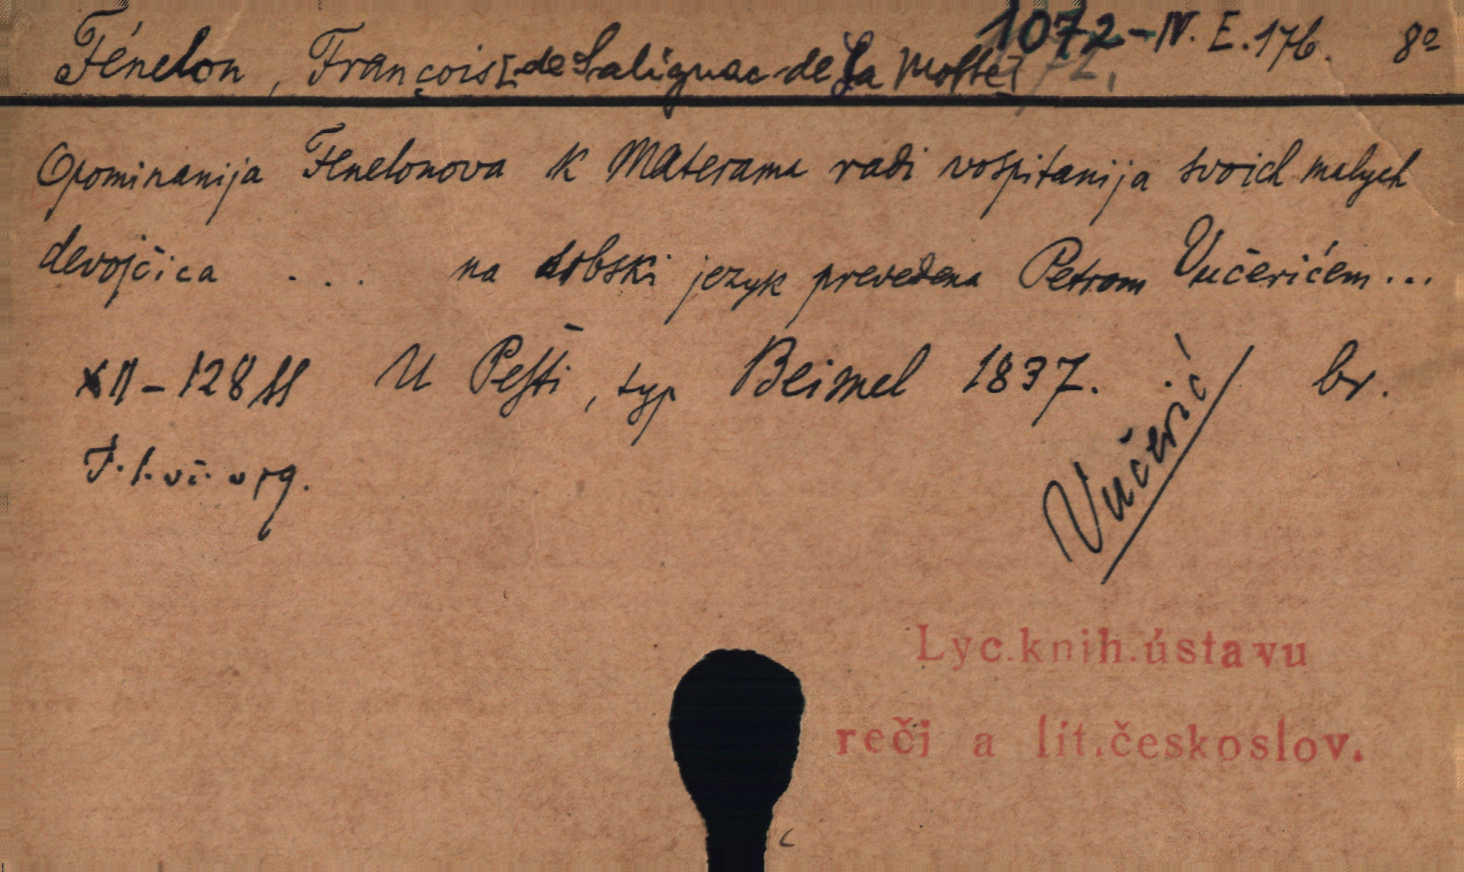 1072-IV. E. 176. 8º
Fénelon, François [de Salignac de La Motte]
Opominanija Fenelonova k Materama radi vospitanija svoich malych
devojčica . . . na srbski jezyk prevedena Petrom Vučerićem...
XII-128 SS U Pešti, typ Beimel 1837. br.
Vučerić
Lyc.knih.ústavu
reči a lit.českoslov.